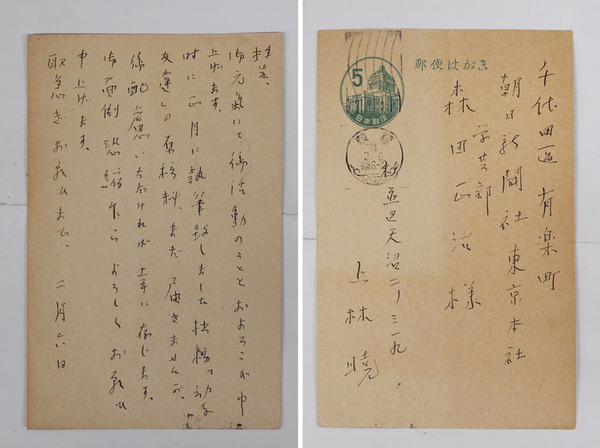 拝呈、
御元気にて御活動のこととおよろこび申
上げます。
時に正月に執筆致しました拙稿「幼な
友達」の原稿料、まだ届きませんが、
御配慮いただければ幸に存じます。
御面倒恐縮乍らよろしくお願ひ
申上げます。
取急ぎお願ひまで。 二月六日
郵便はがき
5
日本郵便
千代田区有楽町
朝日新聞社東京本社
学芸部
森田正治様
杉並区天沼二ノ三一九
上林曉